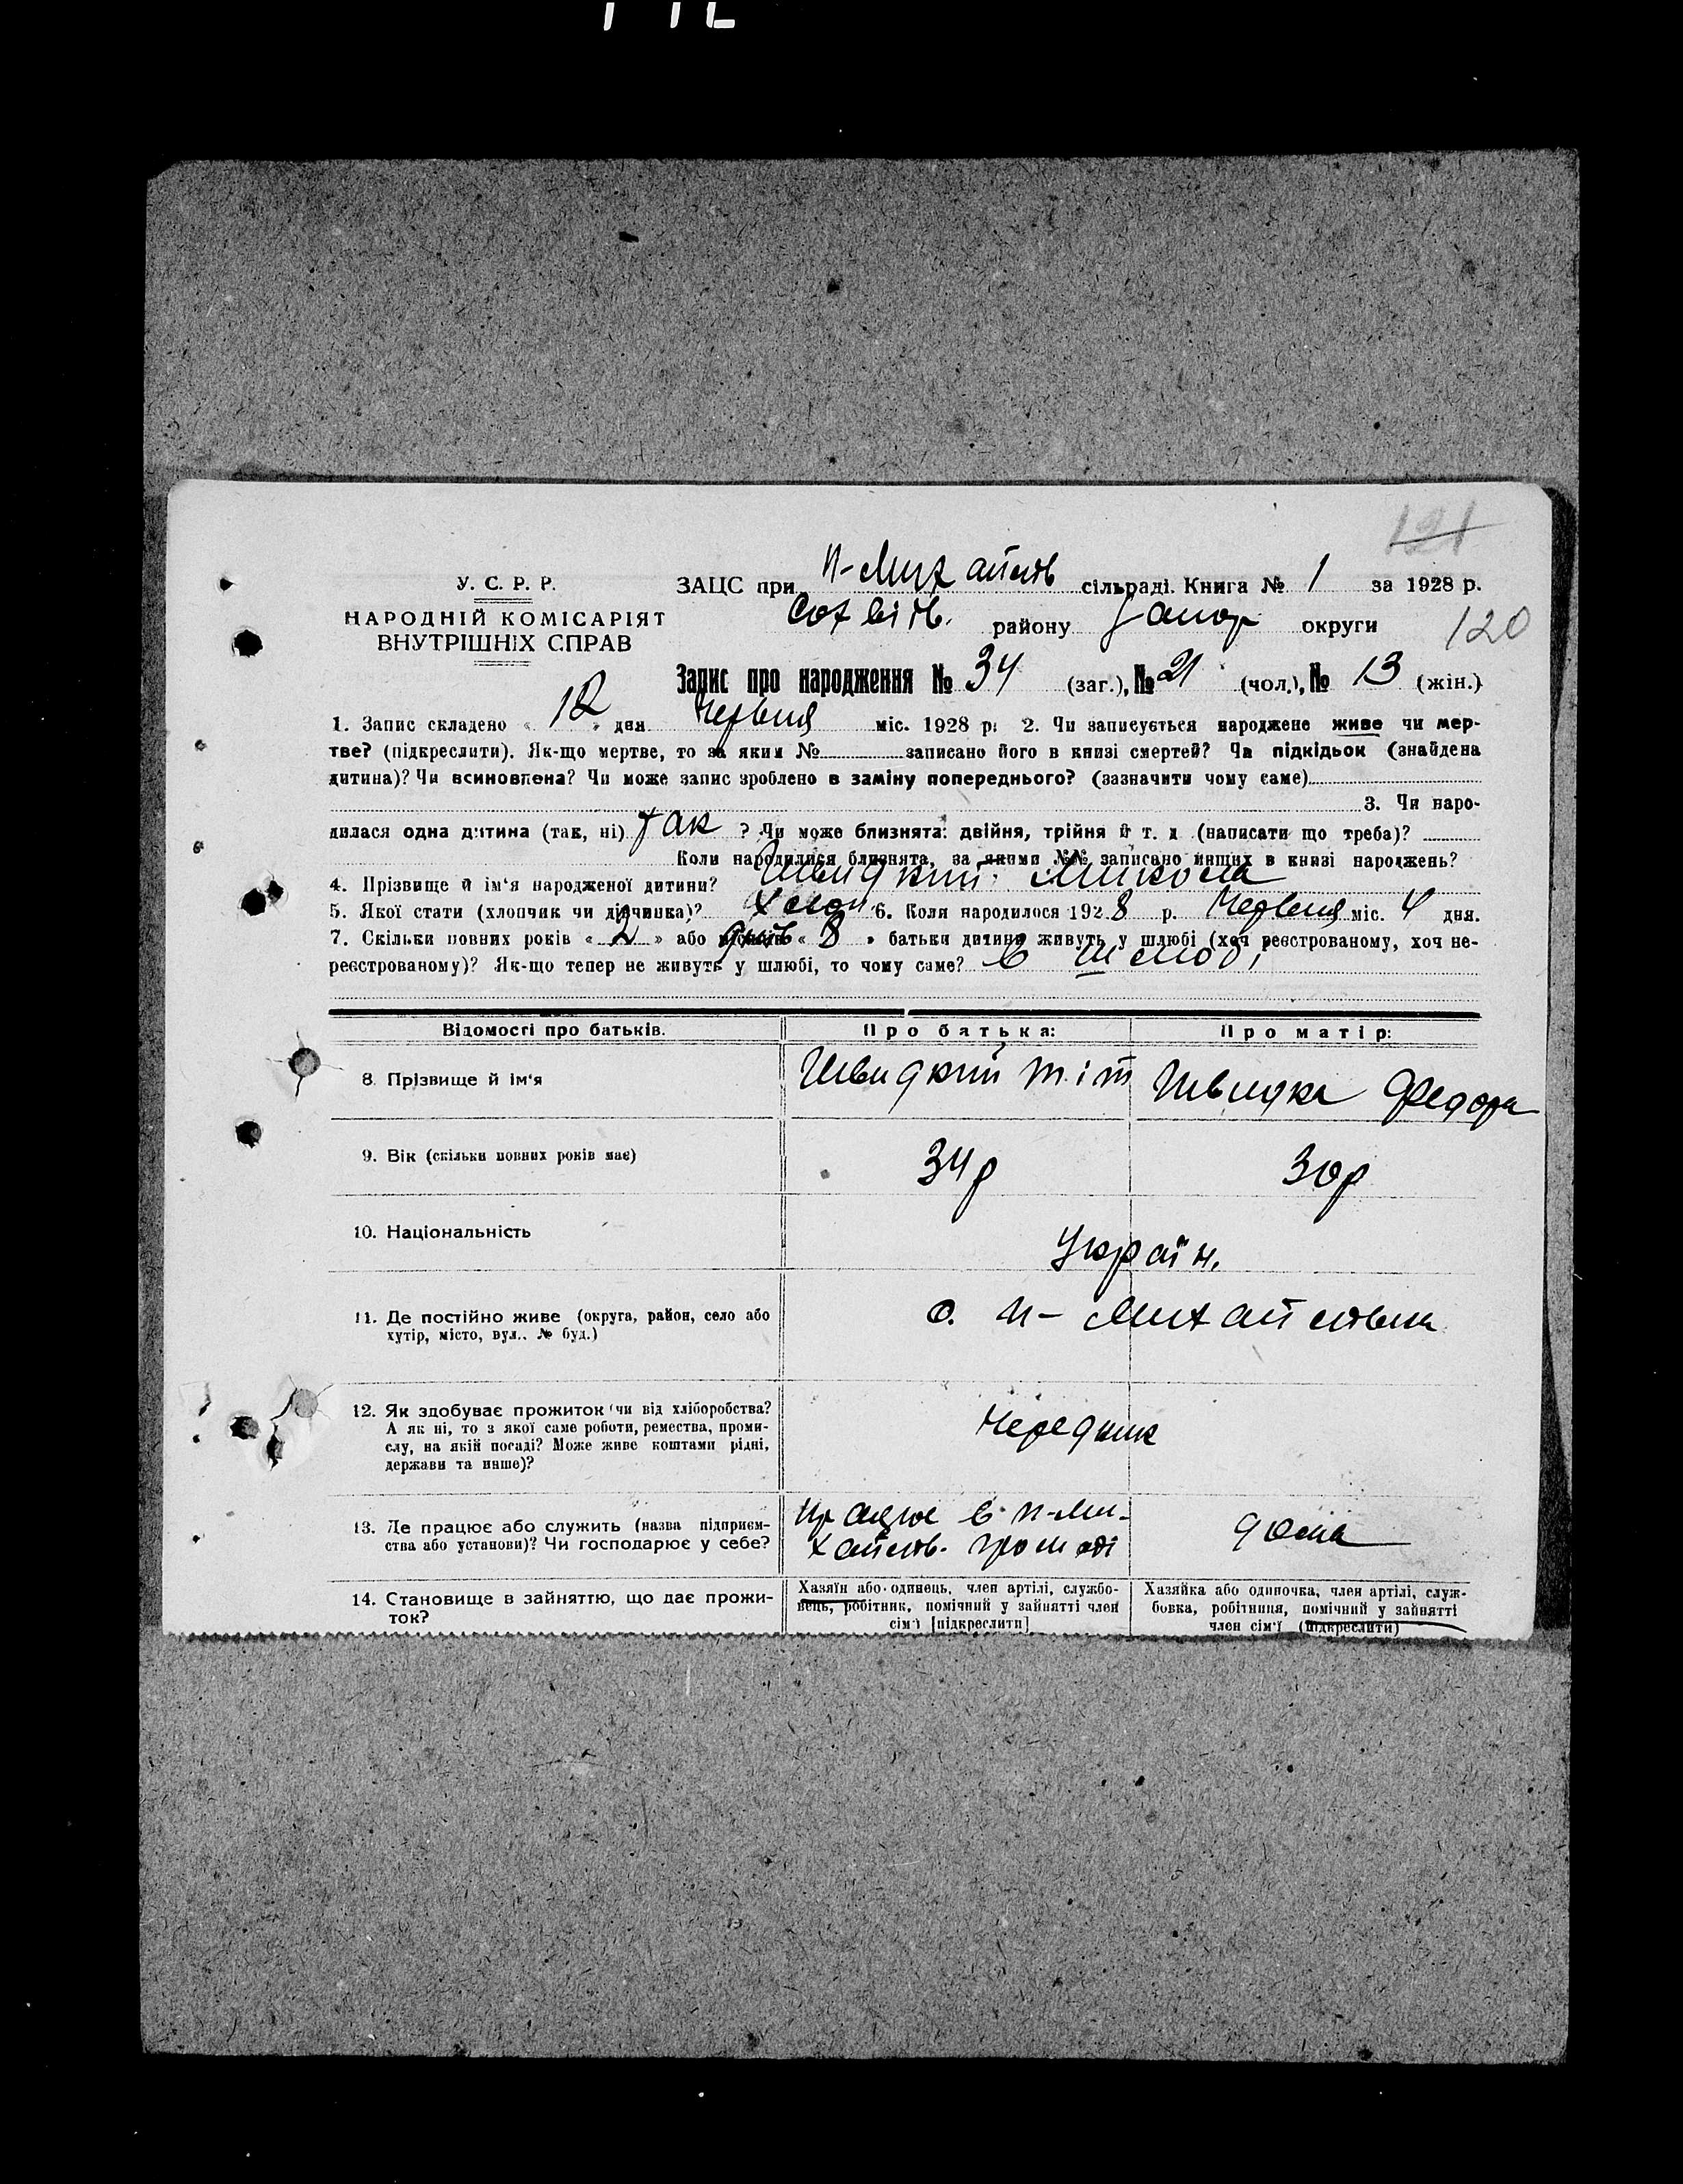 121
У. С. Р. Р.
НАРОДНІЙ КОМІСАРІЯТ
ВНУТРІШНІХ СПРАВ
ЗАЦС при Н-Михайлів сільраді. Книга № 1 за 1928 р.
району Запор округи 120
Запис про народження № 34 (заг.), № 21 (чол.), № 13 (жін.)
1. Запис складено « 12 » дня Червня міс. 1928 р. 2. Чи записується народжене живе чи мер-
тве? (підкреслити). Як-що мертве, то за яким № записано його в книзі смертей? Чи підкідьок (знайдена
дитина)? Чи всиновлена? Чи може запис зроблено в заміну попереднього? (зазначити чому саме)
3. Чи наро-
дилася одна дитина (так, ні) так ? Чи може близнята: двійня, трійня й т. д. (написати що треба)?
Коли народилися близнята, за якими №№ записано инших в книзі народжень?
4. Прізвище й ім'я народженої дитини? Швидкий Микола
5. Якої стати (хлопчик чи дівчинка)? Хлоп 6. Коли народилося 1928 р. Червня міс. 4 дня.
7. Скільки повних років « 2 » або днів « 8 » батьки дитини живуть у шлюбі (хоч реєстрованому, хоч не-
реєстрованому)? Як-що тепер не живуть у шлюбі, то чому саме? В шлюбі
Відомості про батьків. Про батька: Про матір:
8. Прізвище й ім'я Швидкий Тіт Швидка Федора
9. Вік (скільки повних років має) 34р 30р
10. Національність Україн.
11. Де постійно живе (округа, район, село або
хутір, місто, вул., № буд.) с. Н-Михайлівка
12. Як здобуває прожиток (чи від хліборобства?
А як ні, то з якої саме роботи, ремества, проми-
слу, на якій посаді? Може живе коштами рідні,
держави та инше)? Чередник
13. Де працює або служить (назва підприєм-
ства або установи)? Чи господарює у себе? Працює в Н-Ми-
хайлів. громаді дома
14. Становище в зайняттю, що дає прожи-
ток?
Хазяїн або одинець, член артілі, службо-
вець, робітник, помічний у зайнятті член
сім'ї [підкреслити]
Хазяйка або одиночка, член артілі, служ-
бовка, робітниця, помічний у зайнятті
член сім'ї (підкреслити)